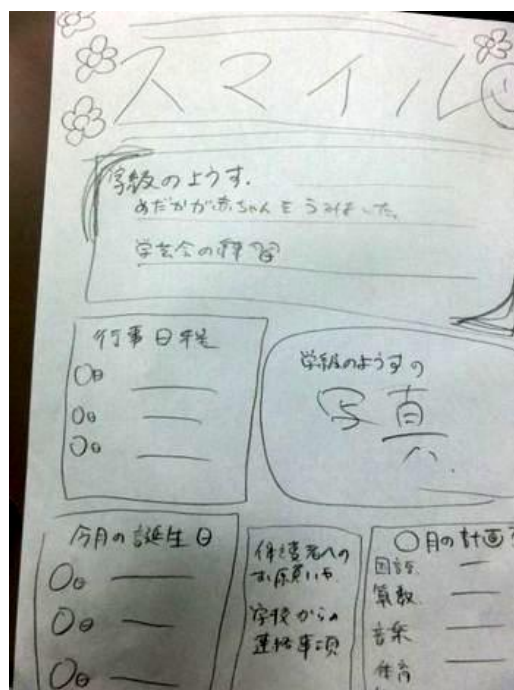 スマイル
学級のようす.
めだかが赤ちゃんをうみました。
学芸会の練習
行事日程
○日
○日
○日
学級のようすの
写真
今月の誕生日
○日
○日
○日
保護者への
お願いも
学校からの
連絡事項
○月の計画
国語
算数
音楽
体育